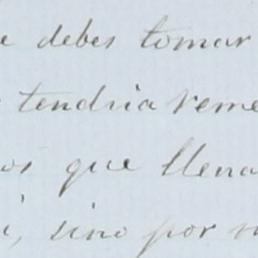 e debes tomar
tendria reme
os que llena
i, sino por m